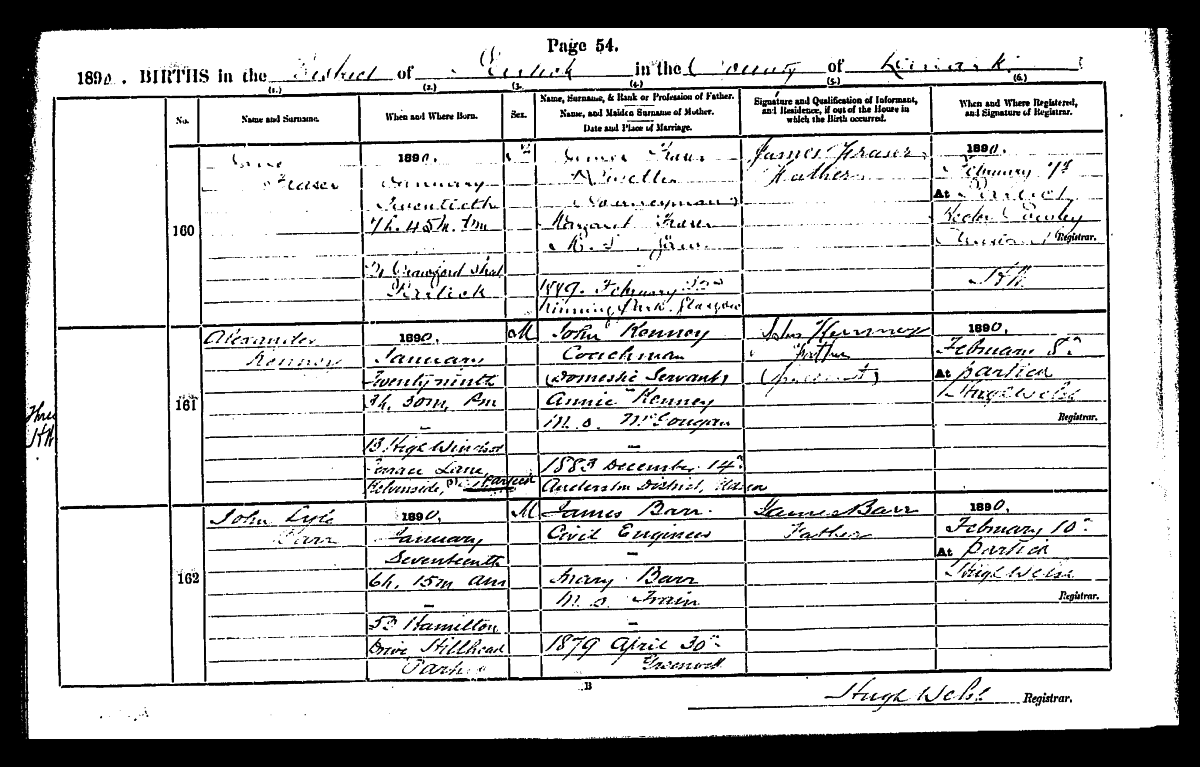 Page 54.
1890. BIRTHS in the District of Partick in the County of Lanark
(1.) (2.) (3.) (4.) (5.) (6.)
No. Name and Surname. When and Where Born. Sex. Name, Surname, & Rank or Profession of Father. Name, and Maiden Surname of Mother. Date and Place of Marriage. Signature and Qualification of Informant, and Residence, if out of the House in which the Birth occurred. When and Where Registered, and Signature of Registrar.
160
Fraser
1890.
January
7h. 45m.
Crawford Street
Partick
James Fraser
Riveller
(Journeyman)
Margaret Fraser
M. S.
1889. February
Kinning Park. Glasgow
James Fraser
Father
1890.
February 7th
At Partick
Registrar.
161
Alexander
Kenney
1890.
January
Twenty ninth
3h. 30m. Pm
13 High Windsor
Terrace Lane
Kelvinside, Partick
M
John Kenney
Coachman
(Domestic Servant)
Annie Kenney
M. S. McGougan
1883 December 14th
Anderston District,
John Kenney
Father
1890.
February 8th
At Partick
Hugh Welsh
Registrar.
162
John Lyle
Barr
1890.
January
Seventeenth
6h. 15m am
53 Hamilton
Drive Hillhead
Partick
M
James Barr.
Civil Engineer
Mary Barr
M. S. Train
1879 April 30th
Greenock
James Barr
Father
1890.
February 10th
At Partick
Hugh Welsh
Registrar.
B
Hugh Welsh Registrar.